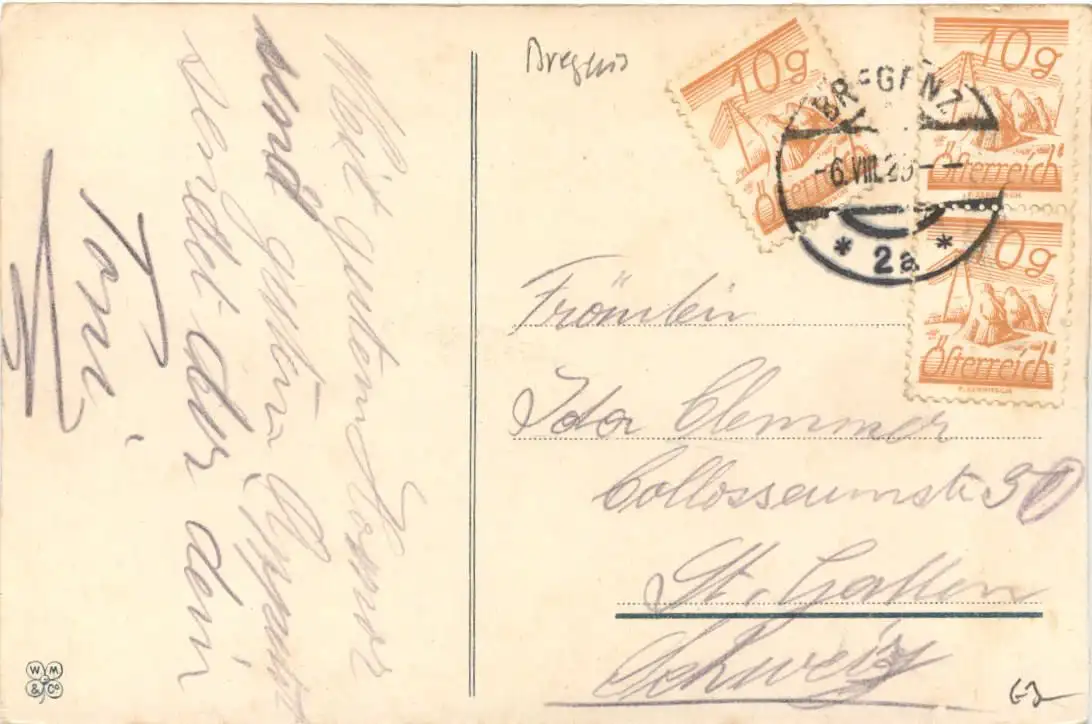 Bregenz
10g
Österreich
10g
Österreich
10g
Österreich
BREGENZ
-6.VIII.2
* 2a *
Mit guten
und guten
sendet dir dein
Toni
Fräulein
Ida Clemmer
Collosseumstr 30
St. Gallen
Schweiz
W M
& Co